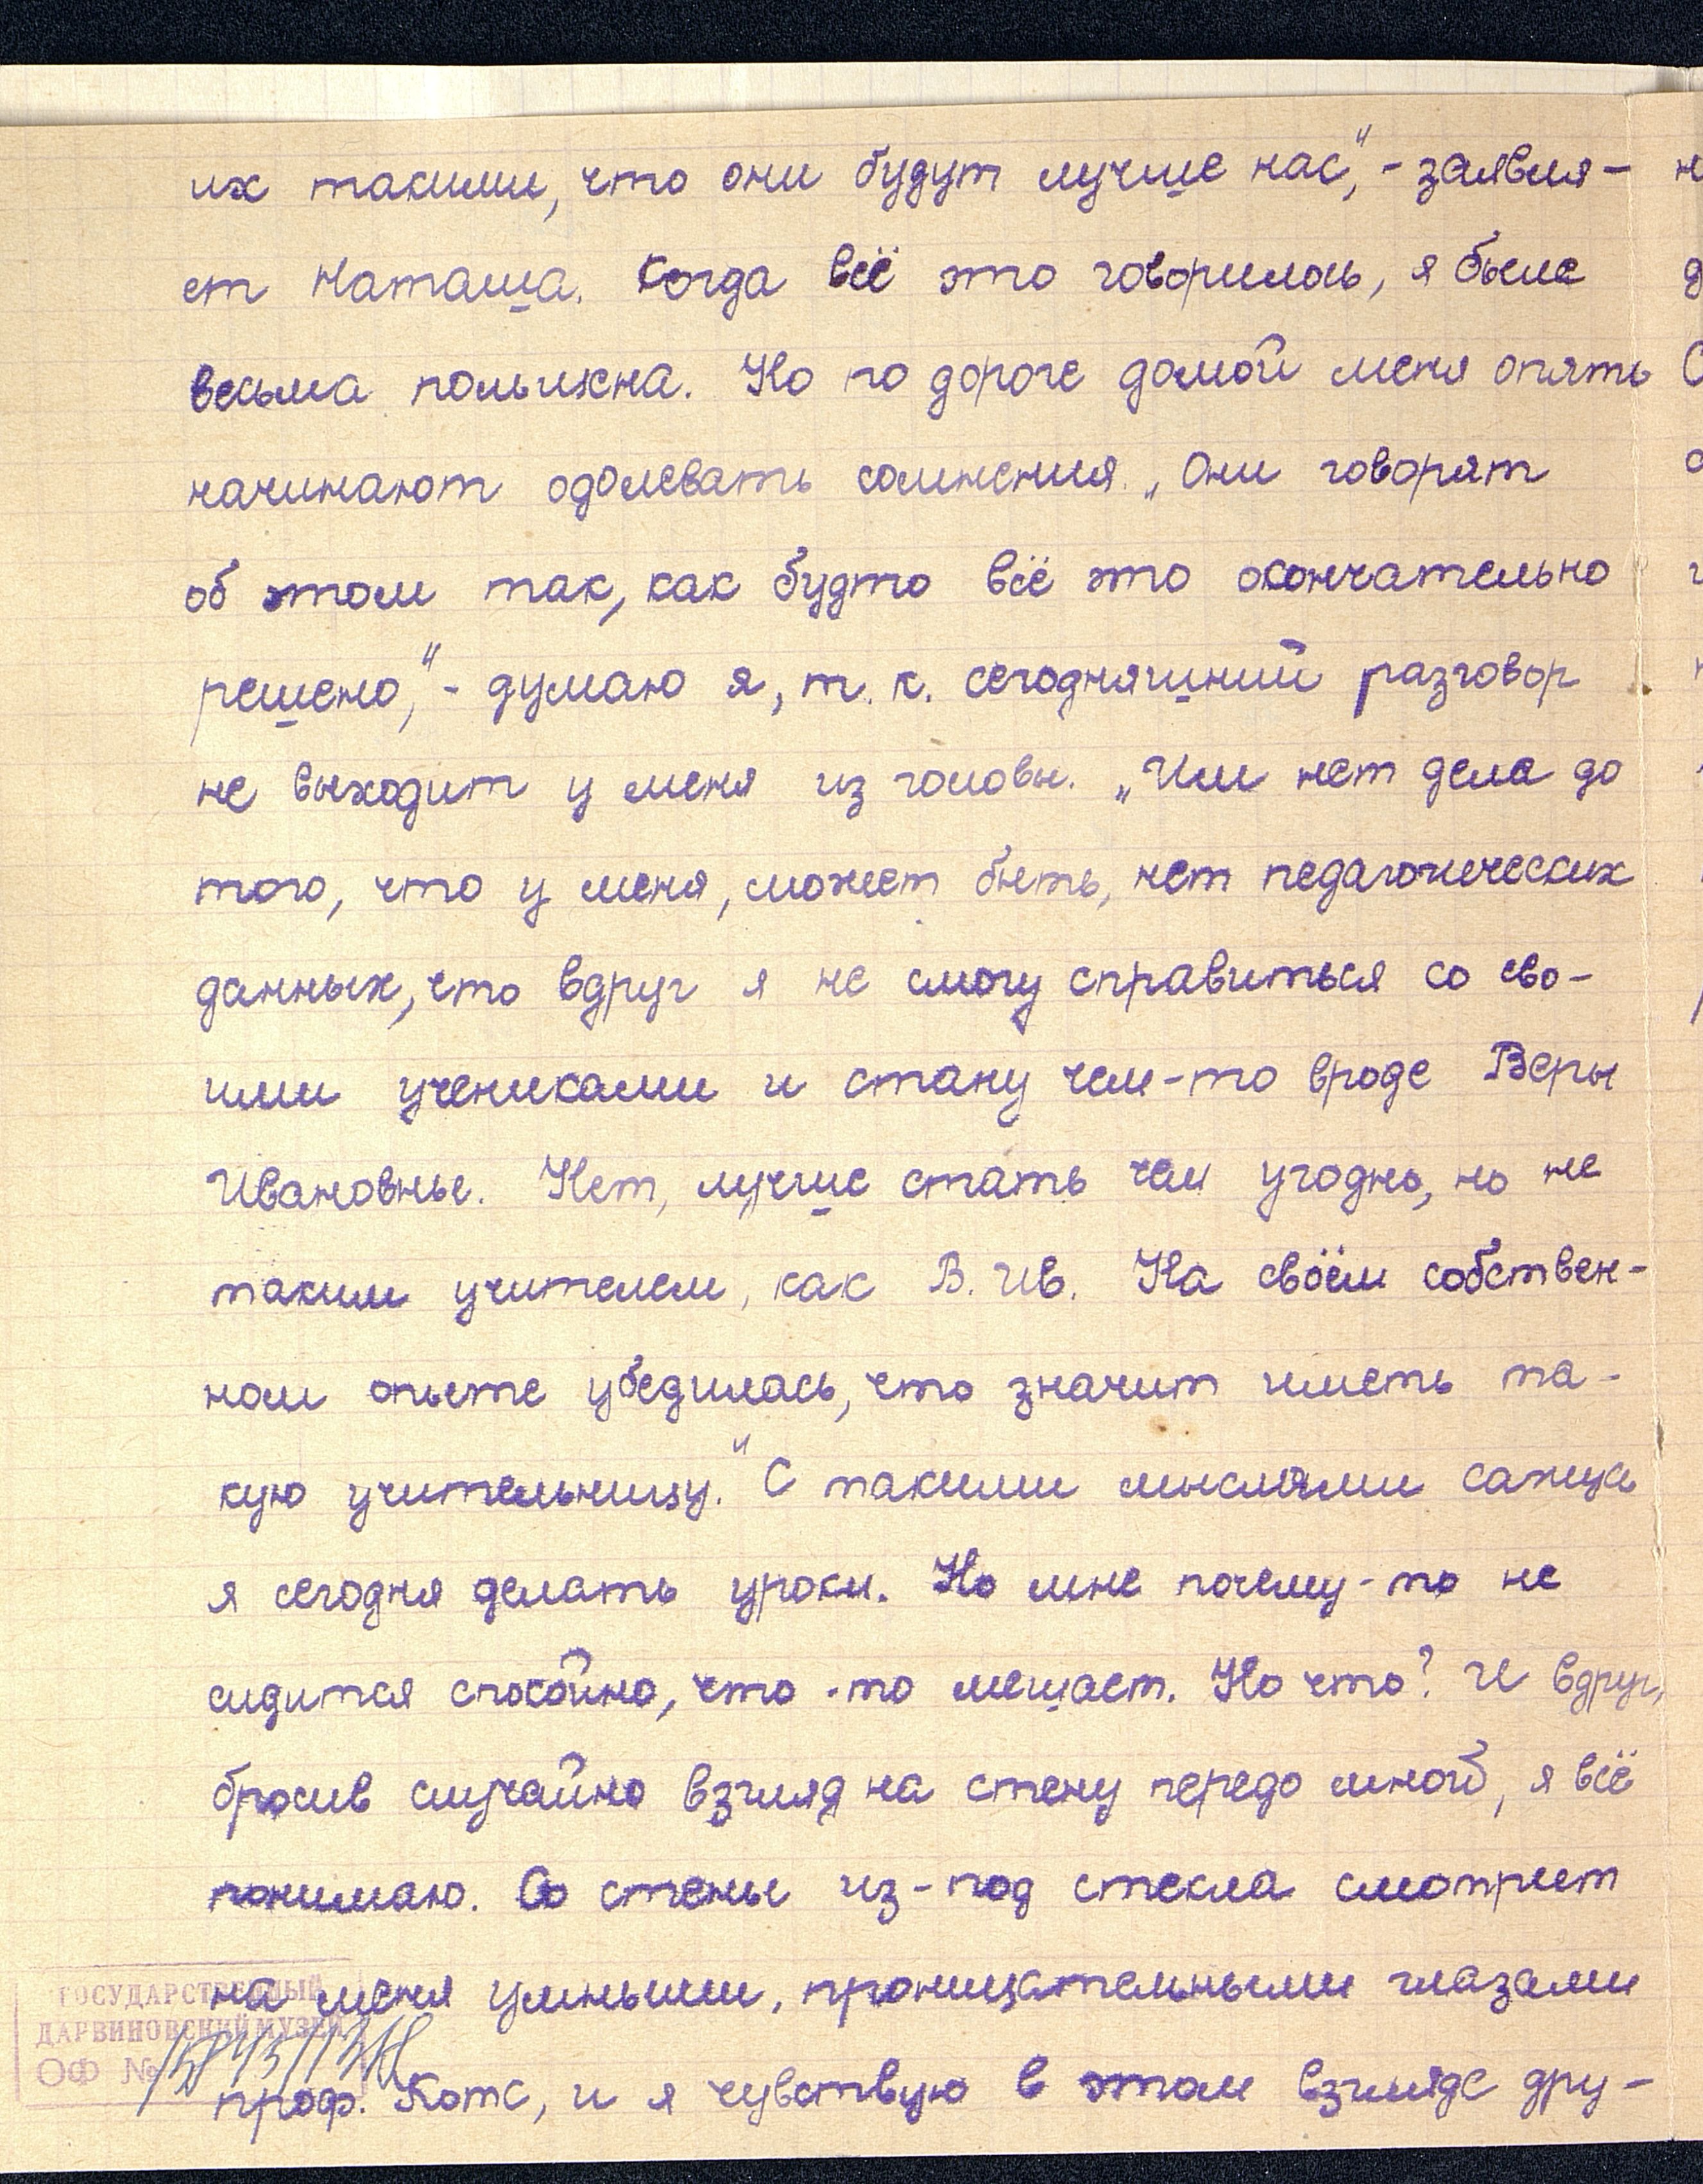 их такими, что они будут лучше нас", - заявля-
ет Наташа. Когда всё это говорилось, я была
весьма польщена. Но по дороге домой меня опять
начинают одолевать сомнения. „Они говорят
об этом так, как будто всё это окончательно
решено," - думаю я, т. к. сегодняшний разговор
не выходит у меня из головы. „Им нет дела до
того, что у меня, может быть, нет педагогических
данных, что вдруг я не смогу справиться со сво-
ими учениками и стану чем-то вроде Веры
Ивановны. Нет, лучше стать чем угодно, но не
таким учителем, как В. Ив. На своём собствен-
ном опыте убедилась, что значит иметь та-
кую учительницу." С такими мыслями сажусь
я сегодня делать уроки. Но мне почему-то не
сидится спокойно, что-то мешает. Но что? И вдруг,
бросив случайно взгляд на стену передо мной, я всё
понимаю. Со стены из-под стекла смотрит
на меня умными, проницательными глазами
проф. Котс, и я чувствую в этом взгляде дру-
ГОСУДАРСТВЕННЫЙ
ДАРВИНОВСКИЙ МУЗЕЙ
ОФ №